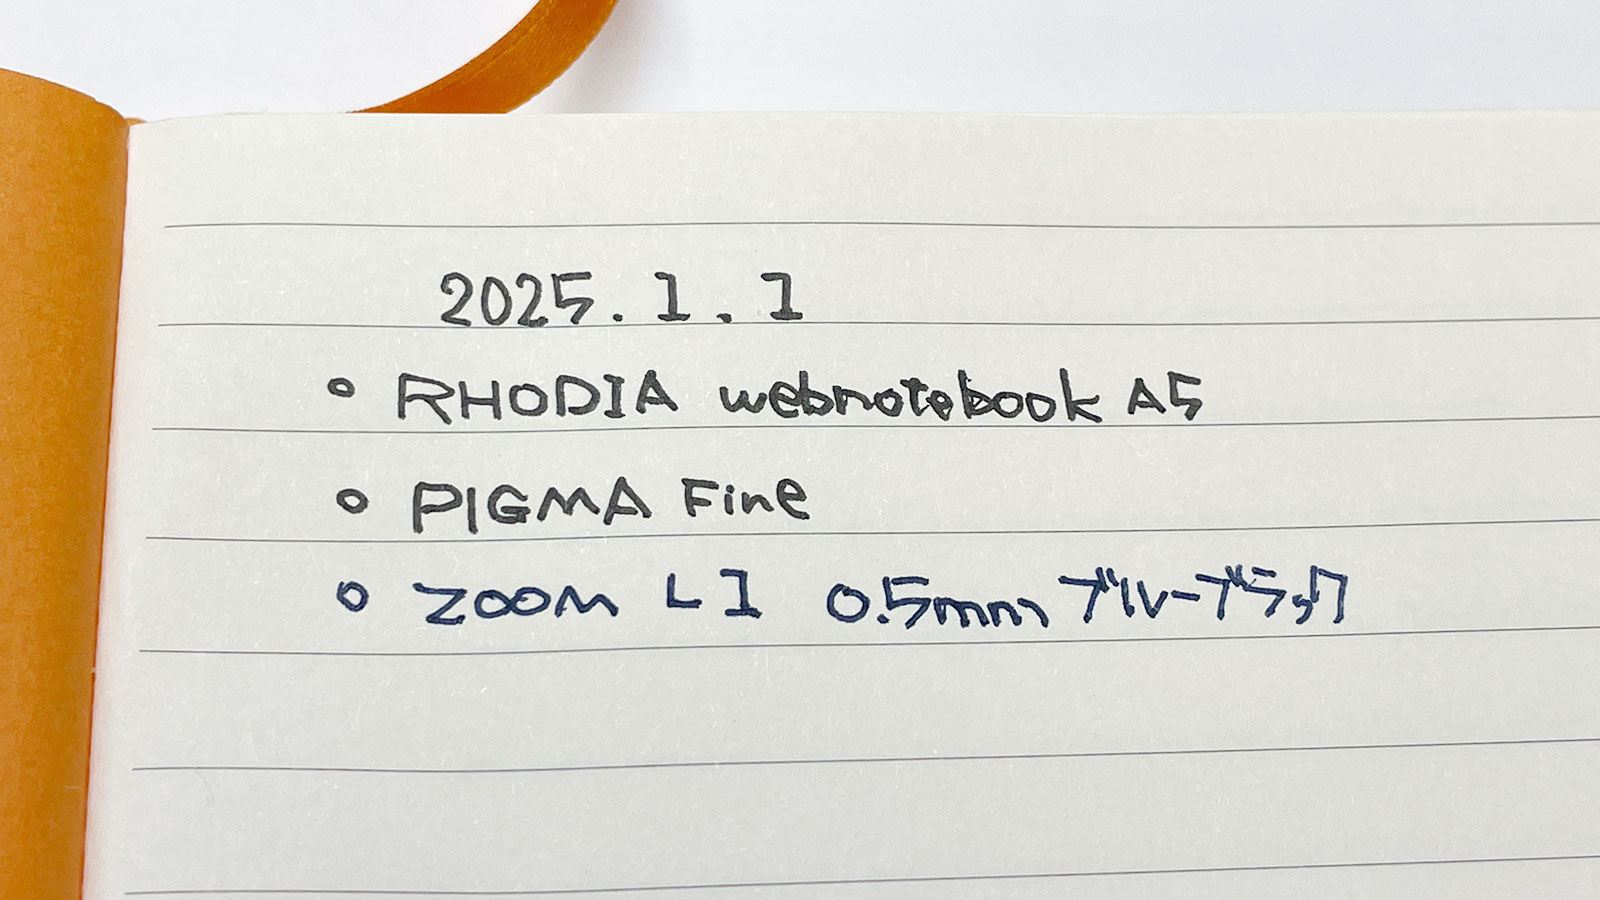 2025.1.1
○ RHODIA webnotebook A5
○ PIGMA Fine
○ ZOOM L1 0.5mm ブルーブラック